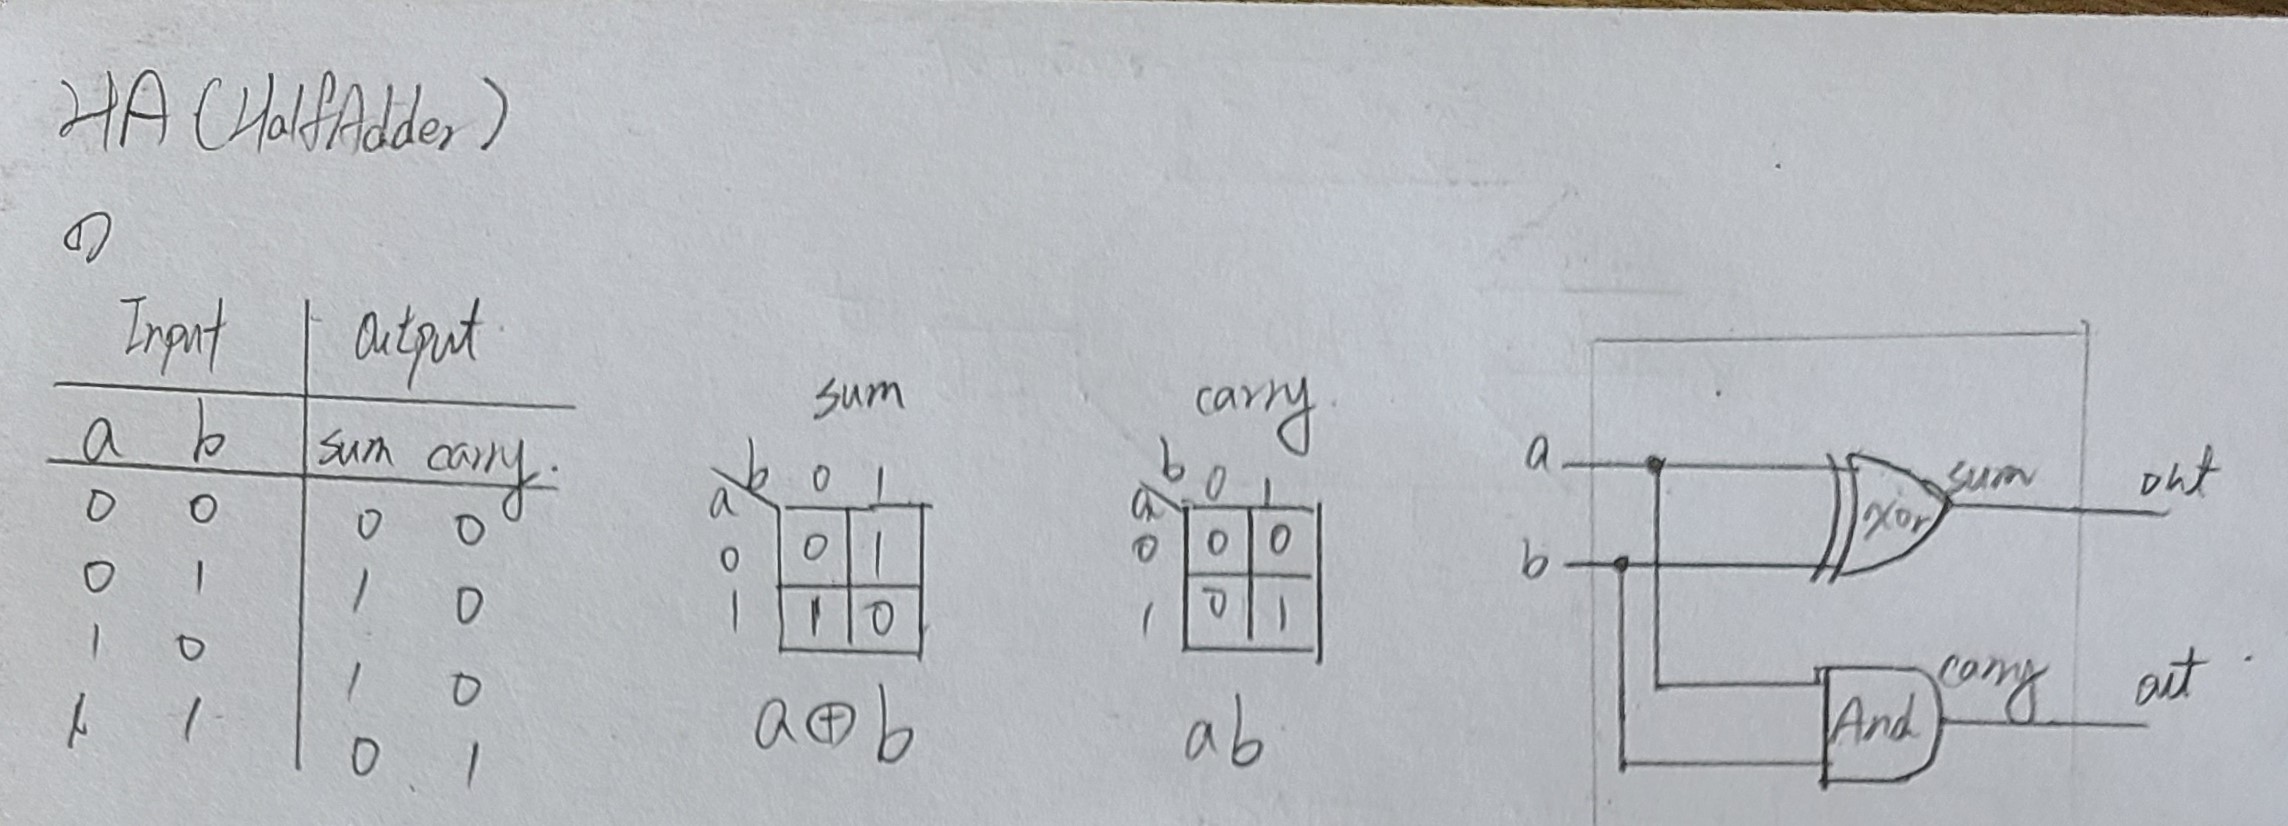 HA (HalfAdder)
Input Output
a b sum carry.
0 0 0 0
0 1 1 0
1 0 1 0
1 1 0 1
sum
b 0 1
a
0 0 1
1 1 0
a⊕b
carry.
b 0 1
a
0 0 0
1 0 1
ab
a
b
xor
sum
out
And
carry
out